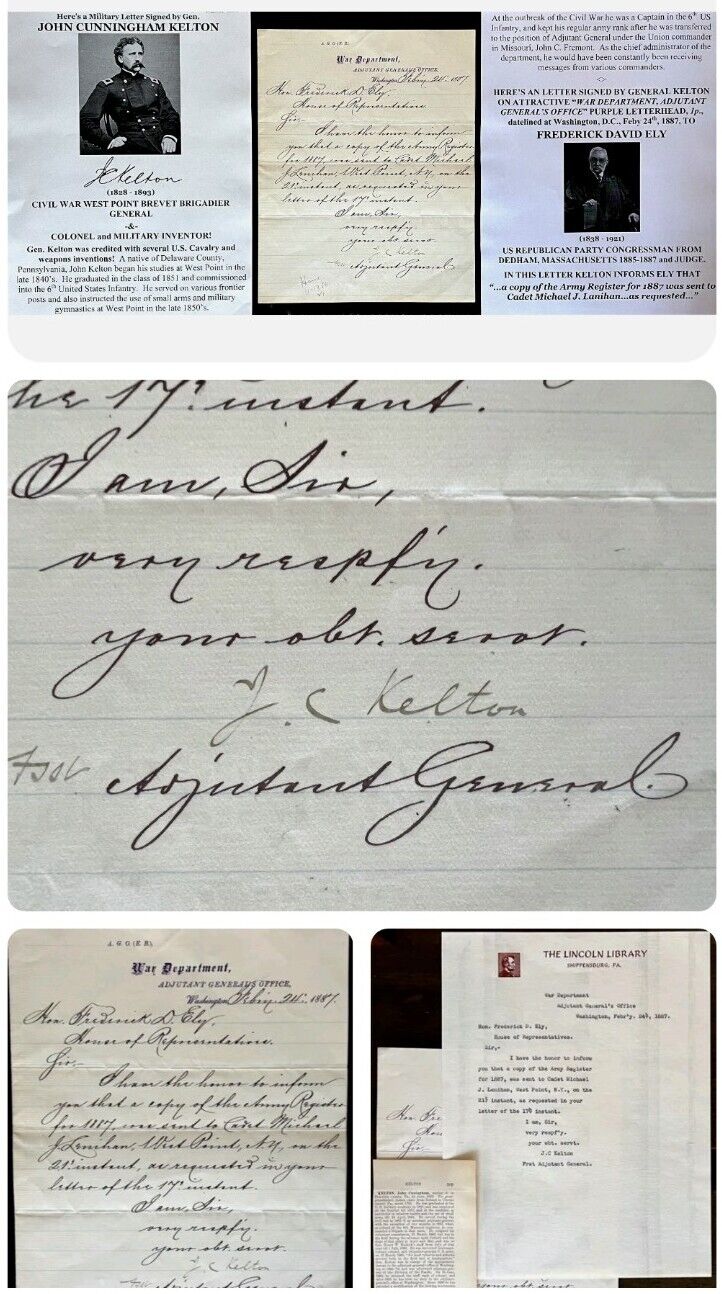 Here's a Military Letter Signed by Gen.
JOHN CUNNINGHAM KELTON
JC Kelton
(1828 - 1893)
CIVIL WAR WEST POINT BREVET BRIGADIER
GENERAL
-&-
COLONEL and MILITARY INVENTOR!
Gen. Kelton was credited with several U.S. Cavalry and
weapons inventions! A native of Delaware County,
Pennsylvania, John Kelton began his studies at West Point in the
late 1840's. He graduated in the class of 1851 and commissioned
into the 6th United States Infantry. He served on various frontier
posts and also instructed the use of small arms and military
gymnastics at West Point in the late 1850's.
A.G.O. (E.B.)
War Department,
ADJUTANT GENERAL'S OFFICE,
Washington, Feb'y. 24th, 1887.
Hon. Frederick D. Ely,
House of Representatives.
Sir:-
I have the honor to inform
you that a copy of the Army Register
for 1887, was sent to Cadet Michael
J. Lenihan, West Point, N.Y., on the
21st instant, as requested in your
letter of the 17th instant.
I am, Sir,
very respf'y.
your obt. servt.
J. C Kelton
Adjutant General.
At the outbreak of the Civil War he was a Captain in the 6th US
Infantry, and kept his regular army rank after he was transferred
to the position of Adjutant General under the Union commander
in Missouri, John C. Fremont. As the chief administrator of the
department, he would have been constantly been receiving
messages from various commanders.
HERE'S AN LETTER SIGNED BY GENERAL KELTON
ON ATTRACTIVE "WAR DEPARTMENT, ADJUTANT
GENERAL'S OFFICE" PURPLE LETTERHEAD, 1p.,
datelined at Washington, D.C., Feby 24th, 1887, TO
FREDERICK DAVID ELY
(1838 - 1921)
US REPUBLICAN PARTY CONGRESSMAN FROM
DEDHAM, MASSACHUSETTS 1885-1887 and JUDGE.
IN THIS LETTER KELTON INFORMS ELY THAT
"...a copy of the Army Register for 1887 was sent to
Cadet Michael J. Lanihan...as requested..."
he 17th instant.
I am, Sir,
very respf'y.
your obt. servt.
J. C Kelton
Adjutant General.
A.G.O. (E.B.)
War Department,
ADJUTANT GENERAL'S OFFICE,
Washington, Feb'y. 24th, 1887.
Hon. Frederick D. Ely,
House of Representatives.
Sir:-
I have the honor to inform
you that a copy of the Army Register
for 1887, was sent to Cadet Michael
J. Lenihan, West Point, N.Y., on the
21st instant, as requested in your
letter of the 17th instant.
I am, Sir,
very respf'y.
your obt. servt.
J. C Kelton
Adjutant General
THE LINCOLN LIBRARY
SHIPPENSBURG, PA.
War Department
Adjutant General's Office
Washington, Feb'y. 24th, 1887.
Hon. Frederick D. Ely,
House of Representatives.
Sir,-
I have the honor to inform
you that a copy of the Army Register
for 1887, was sent to Cadet Michael
J. Lenihan, West Point, N.Y., on the
21st instant, as requested in your
letter of the 17th instant.
I am, Sir,
very respf'y.
your obt. servt.
J.C Kelton
Frst Adjutant General.
Hon. Fre
Hou
Sir:-
KELTON
KELTON, John Cunningham,
your obt. servt.